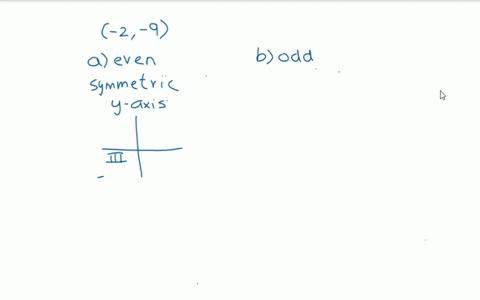 (-2, -9)
a) even
symmetric
y-axis
III
-
b) odd